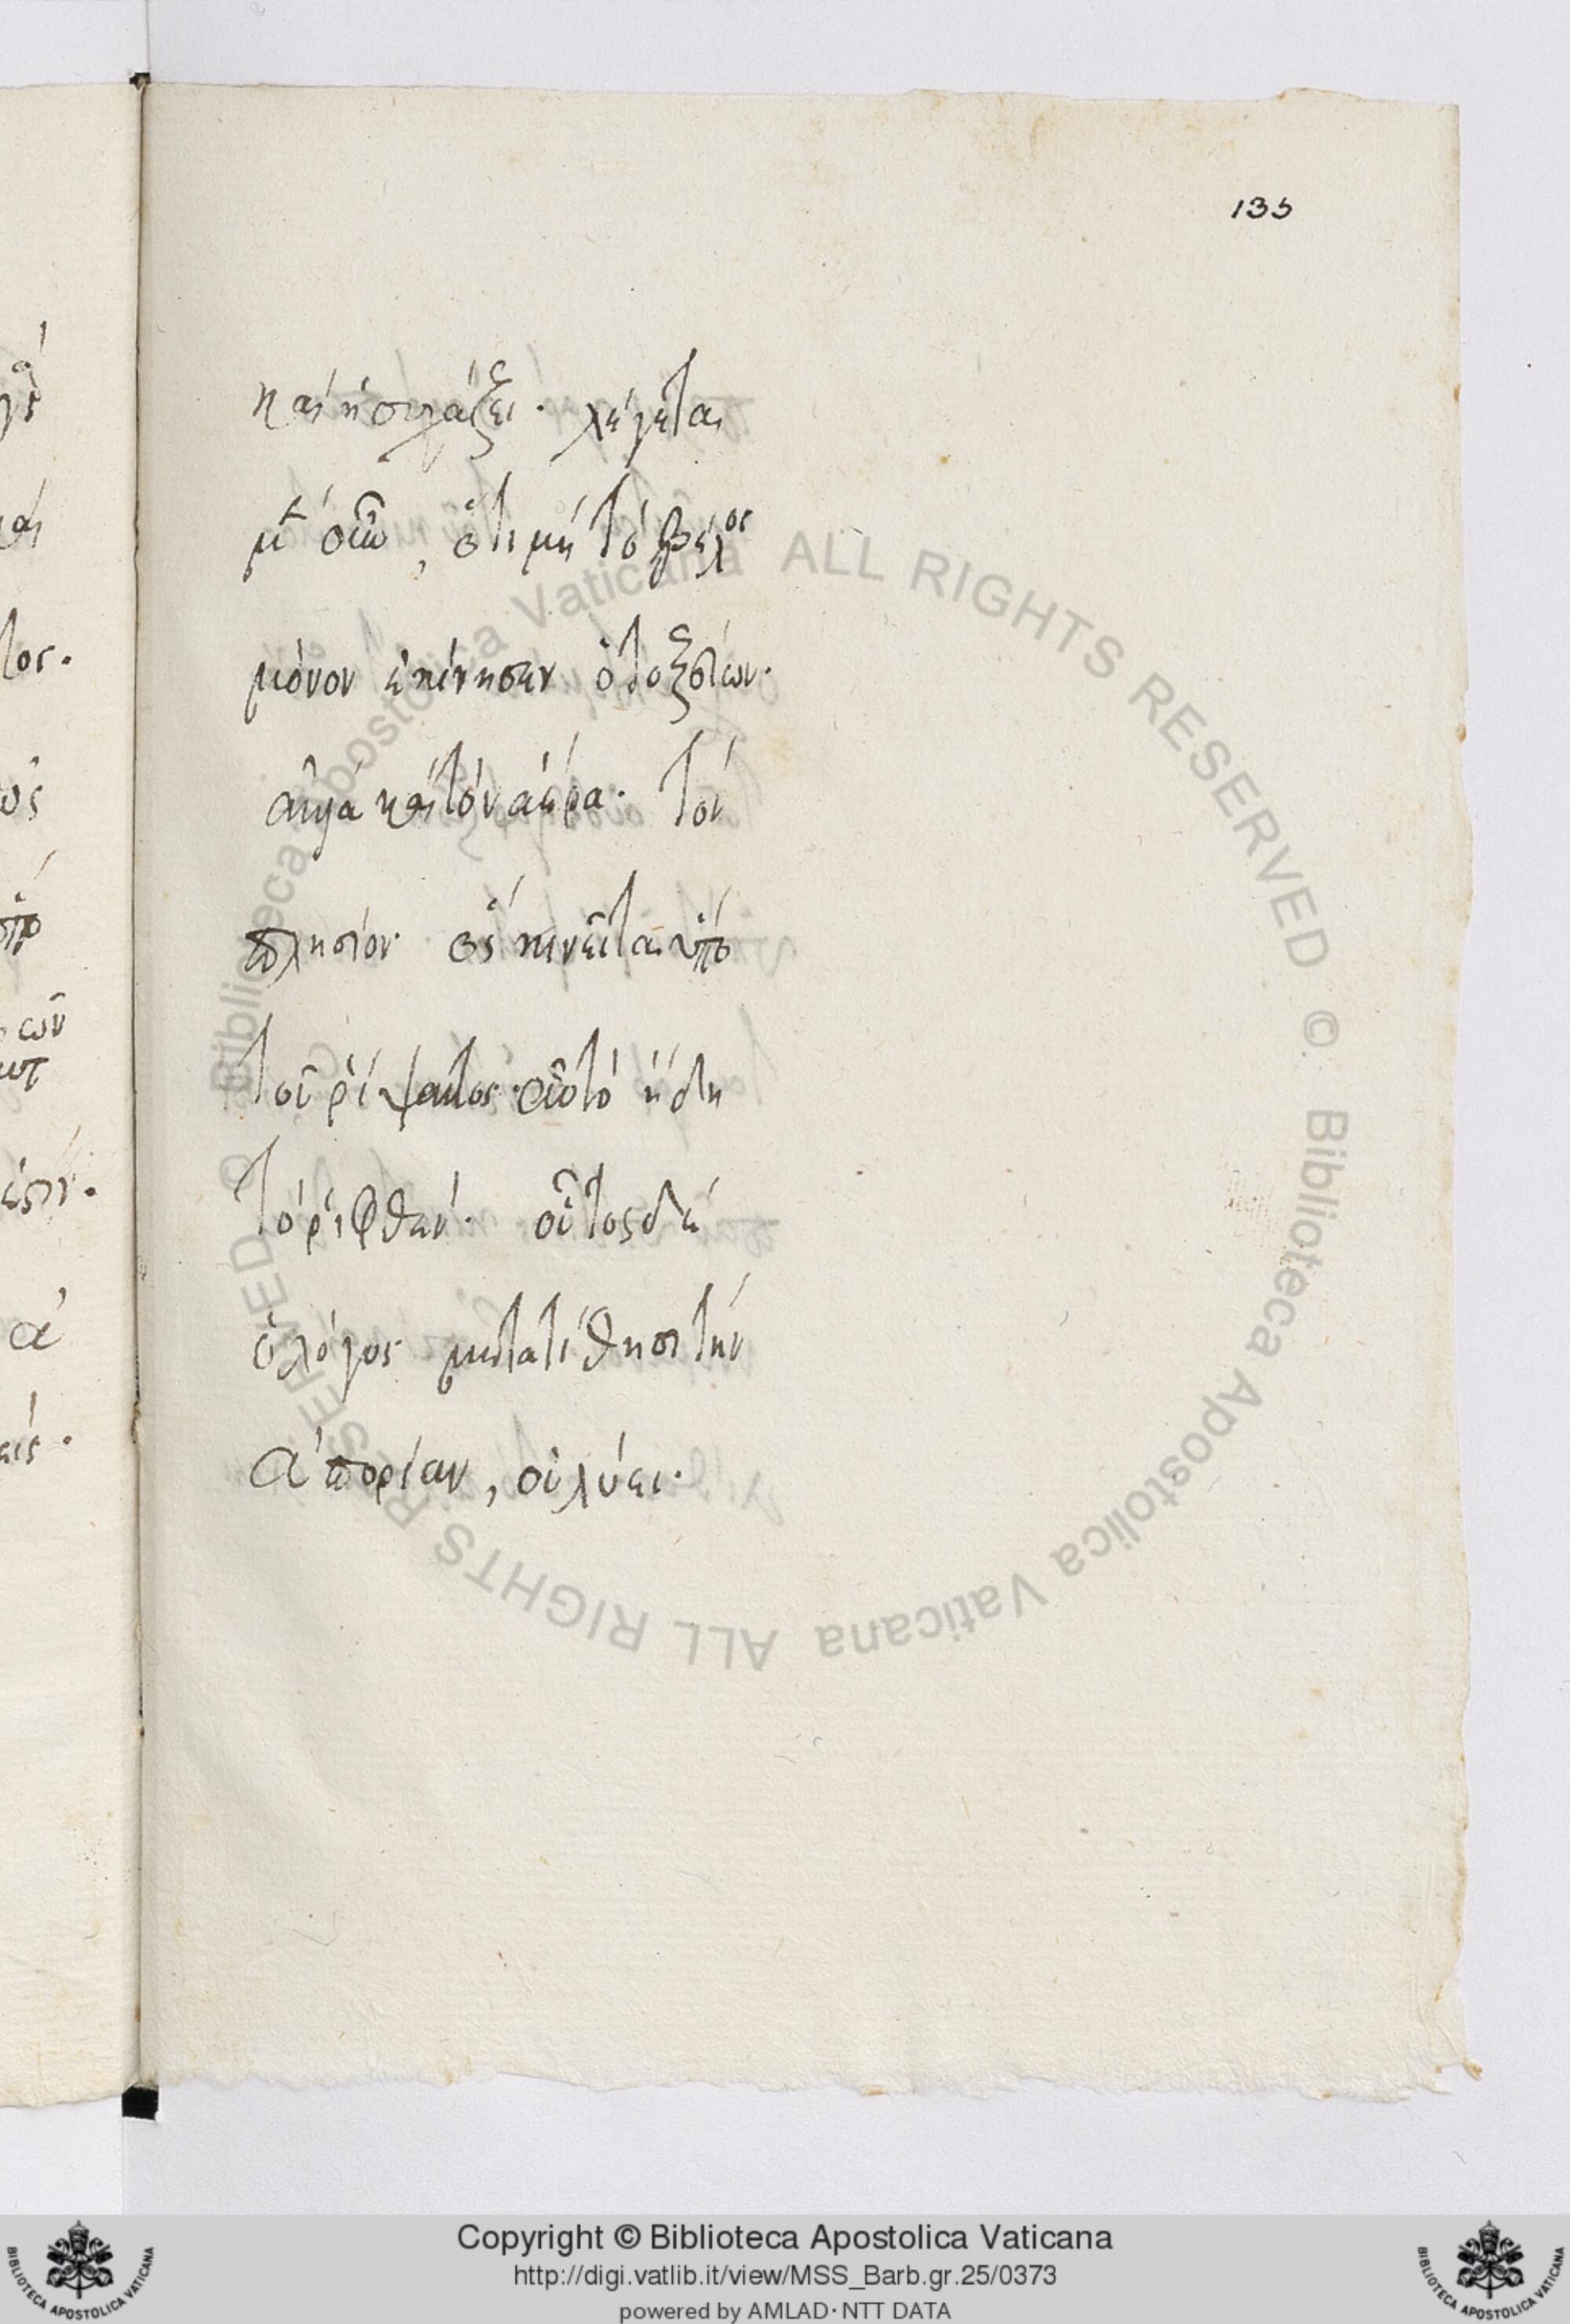 135
καὶ ἡ σφαῖρα. λέγεται
μὲν οὖν, ὅτι μὴ τὸ βέλος
μόνον ἐκίνησεν ὁ τοξεύων.
ἀλλὰ καὶ τὸν ἀέρα. τὸν
πλησίον. ὃς κινεῖται ὑπὸ
τοῦ ῥίψαντος. αὐτὸ ἤδη
τὸ ῥιφθέν. οὗτος δὲ
ὁ λόγος μετατίθησι τὴν
ἀπορίαν, οὐ λύει.
Biblioteca Apostolica Vaticana ALL RIGHTS RESERVED © Biblioteca Apostolica Vaticana ALL RIGHTS RESERVED ©
Copyright © Biblioteca Apostolica Vaticana
http://digi.vatlib.it/view/MSS_Barb.gr.25/0373
powered by AMLAD · NTT DATA
BIBLIOTECA APOSTOLICA VATICANA
BIBLIOTECA APOSTOLICA VATICANA